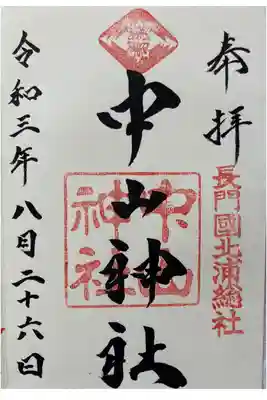 奉拝
長門國北浦総社
中山神社
中山神社
令和三年八月二十六日